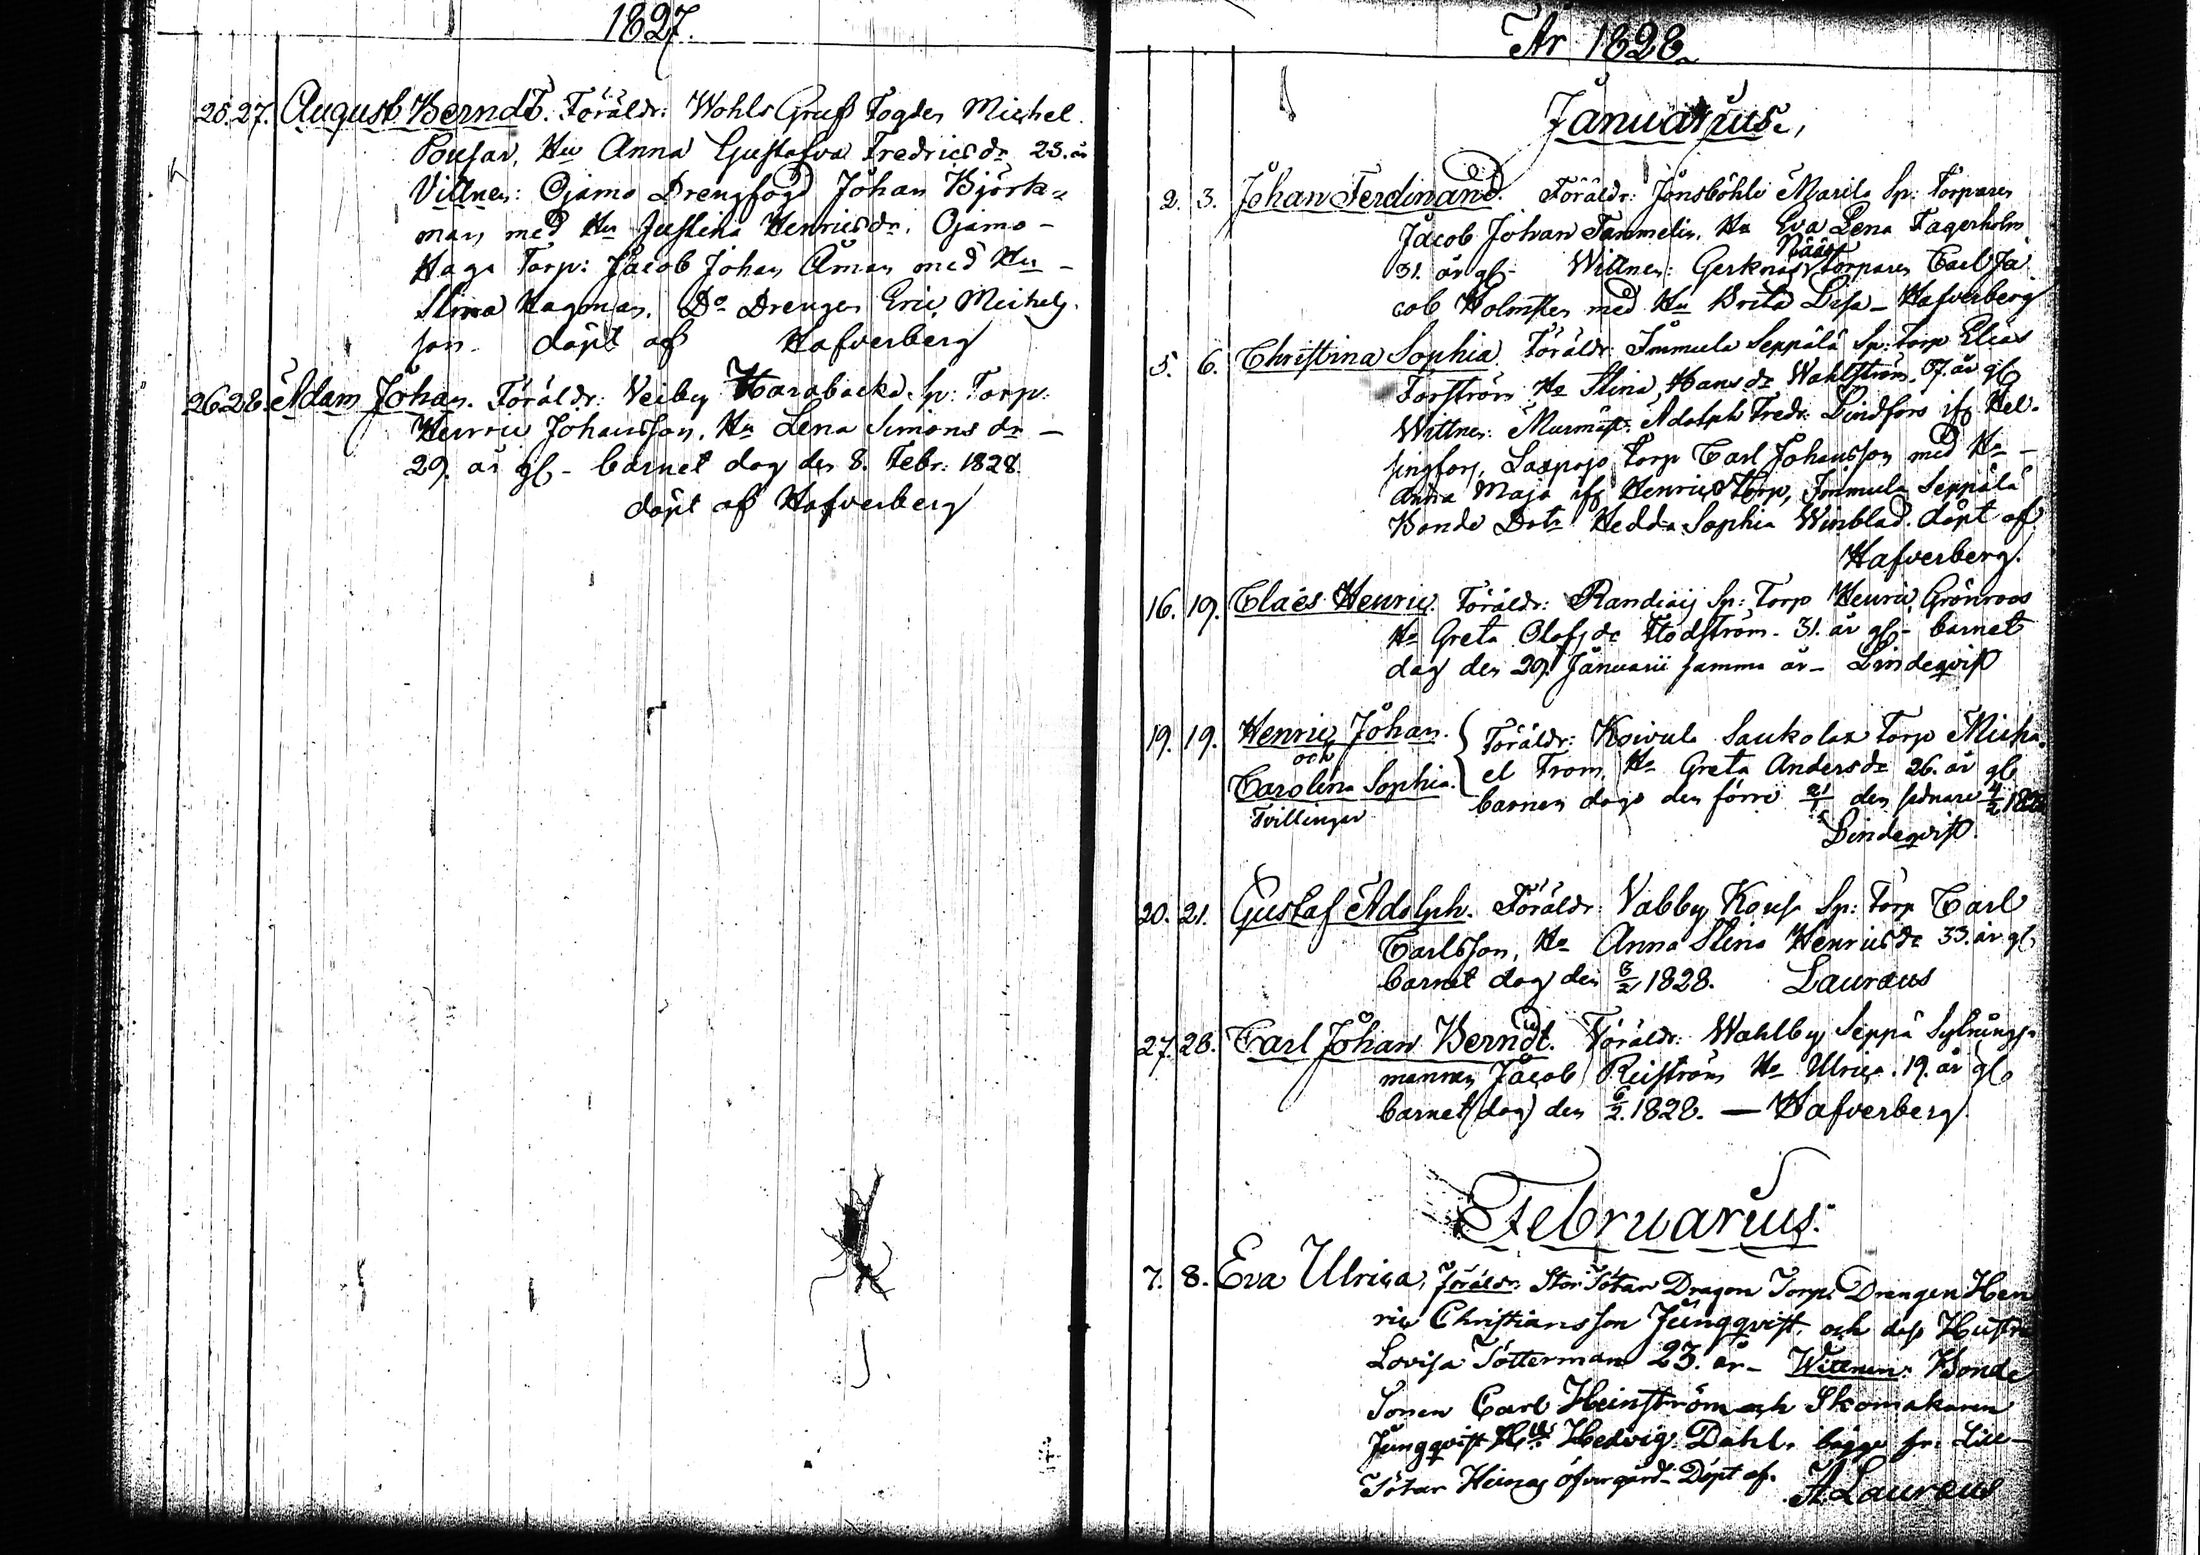 1827.
25. 27. August Berndt. Föräldr: Wohls Gruf Fogden Michel
Pousar, Hu Anna Gustafva Fredricsdr 25. år
Vittnen: Ojamo Drengfogd Johan Björk-
man med Hu Justina Henricsdr. Ojamo -
Haga Torp: Jacob Johan Åman med Hu -
Stina Hagman. Do Drengen Eric Michels
son - döpt af Hafverberg
26. 28. Adam Johan. Föräldr: Veiby Harabacka Sp: Torp:
Henric Johansson. Hu Lena Simons dr -
29. år gl - barnet dog den 8. Febr: 1828.
döpt af Hafverberg
År 1828.
Januarius.
2. 3. Johan Ferdinand. Föräldr: Jönsböhle Marila Sp: Torparen
Jacob Johan Tammelin, Hu Eva Lena Fagerholm
31. år gl - Wittnen: Gerknäs Näås Torparen Carl Ja
cob Holmsten med Hu Brita Lisa - Hafverberg
5. 6. Christina Sophia. Föräldr Immula Seppälä Sp: Torp Elias
Forström Hu Stina Hansdr Wahlström. 37. år gl
Wittnen: Murmäst. Adolph Fredr: Lindfors ifr Hel-
singfors, Laxpojo Torp Carl Johansson med Hu -
Anna Maja ifr Henrics Torp, Immula Seppälä
Bonde Dotr Hedda Sophia Winblad. döpt af
Hafverberg.
16. 19. Claës Henric. Föräldr: Sp: Torp Henric Grönroos
Hu Greta Olofsdr Flodström - 31. år gl - barnet
dog den 29. Januarii samma år - Lindeqvist
19. 19. Henric Johan. Föräldr: Koivula Saukola Torp Micha-
och
el From, Hu Greta Andersdr 26. år gl
Carolina Sophia. barnen dogo den förre 21/1 den sednare 4/2 1828
Tvillingar
Lindeqvist.
20. 21. Gustaf Adolph. Föräldr: Vabby Kous Sp: Torp Carl
Carlsson, Hu Anna Stina Henricsdr 33. år gl
barnet dog den 3/2 1828. Lauræus
27. 28. Carl Johan Berndt. Föräldr: Wahlby Seppä Sytnings-
mannen Jacob Reiström Hu Ulrica. 19. år gl
barnet dog den 6/2. 1828. — Hafverberg
Februarius.
7. 8. Eva Ulrica, Föräldr: Stor Tötar Dragon Torp: Drengen Hen
ric Christiansson Jungqvist, och dess Hustru
Lovisa Tötterman 23. år - Wittnen: Bonde
Sonen Carl Heinström och Skomakaren
Jungqvist Hu Hedvig Dahl, bägge fr: Lill-
Tötar Heinas Öfvergård - Döpt af. A. Lauræus